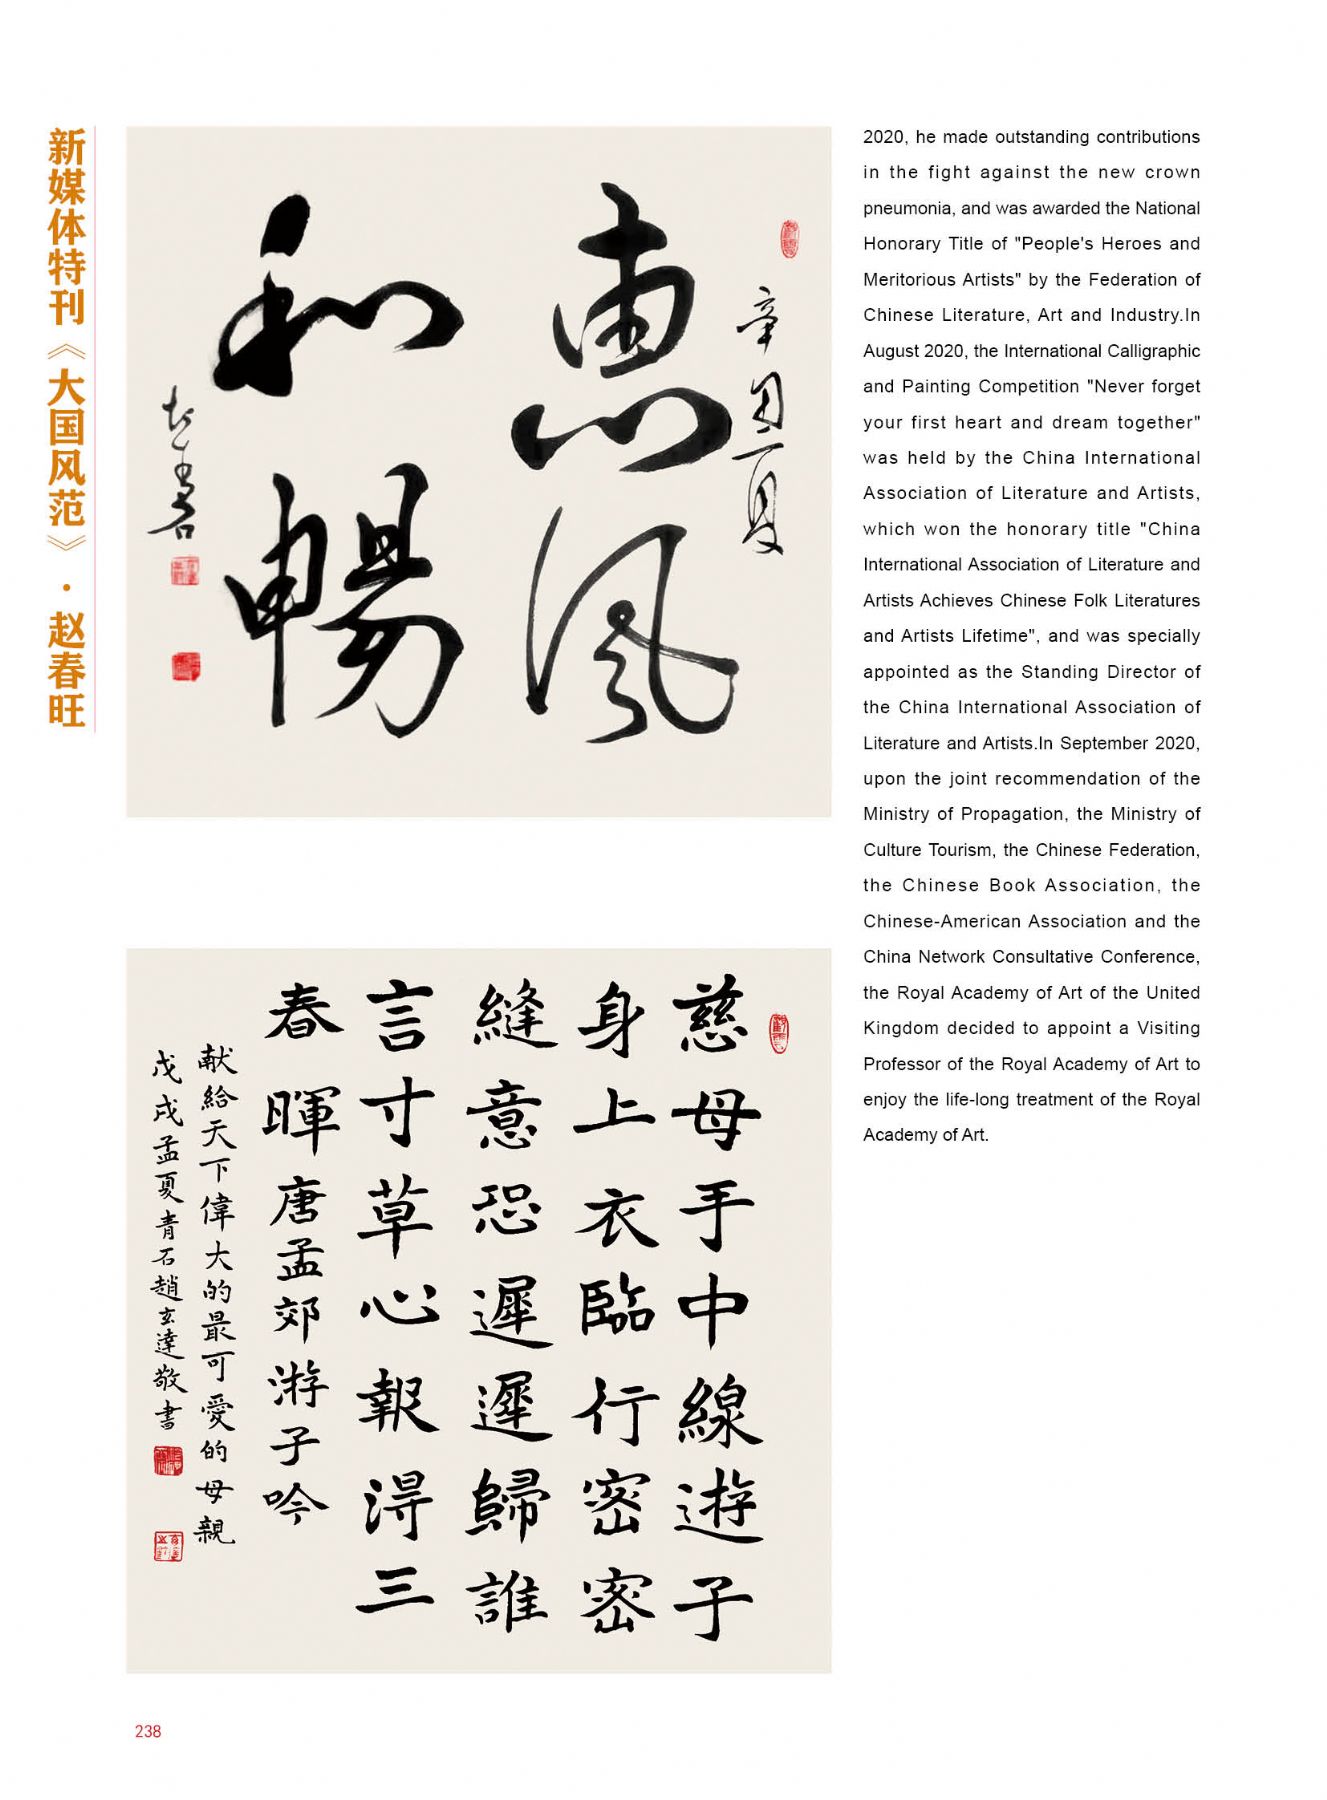 新媒体特刊《大国风范》·赵春旺
辛丑夏
惠风
和暢
慈母手中線遊子
身上衣臨行密密
縫意恐遲遲歸誰
言寸草心報淂三
春暉唐孟郊游子吟
献給天下偉大的最可愛的母親
戊戌孟夏青石趙玄達敬書
2020, he made outstanding contributions
in the fight against the new crown
pneumonia, and was awarded the National
Honorary Title of "People's Heroes and
Meritorious Artists" by the Federation of
Chinese Literature, Art and Industry.In
August 2020, the International Calligraphic
and Painting Competition "Never forget
your first heart and dream together"
was held by the China International
Association of Literature and Artists,
which won the honorary title "China
International Association of Literature and
Artists Achieves Chinese Folk Literatures
and Artists Lifetime", and was specially
appointed as the Standing Director of
the China International Association of
Literature and Artists.In September 2020,
upon the joint recommendation of the
Ministry of Propagation, the Ministry of
Culture Tourism, the Chinese Federation,
the Chinese Book Association, the
Chinese-American Association and the
China Network Consultative Conference,
the Royal Academy of Art of the United
Kingdom decided to appoint a Visiting
Professor of the Royal Academy of Art to
enjoy the life-long treatment of the Royal
Academy of Art.
238